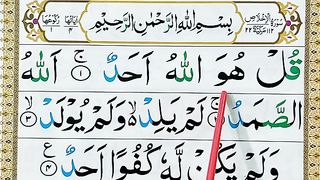 سُوۡرَةُ الۡاِخۡلَاصِ
بِسۡمِ اللّٰهِ الرَّحۡمٰنِ الرَّحِيۡمِ
قُلۡ هُوَ اللّٰهُ اَحَدٌ ۚ ١ اَللّٰهُ
الصَّمَدُ ۚ ٢ لَمۡ يَلِدۡ ۙ وَلَمۡ يُوۡلَدۡ ۙ ٣
وَلَمۡ يَكُنۡ لَّهٗ كُفُوًا اَحَدٌ ٤ ع